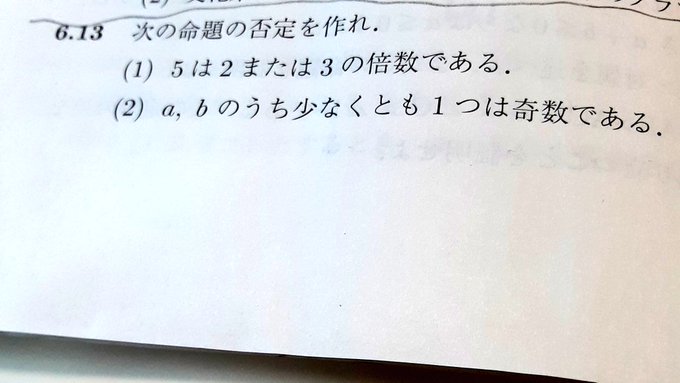 (2)
6.13 次の命題の否定を作れ.
(1) 5 は 2 または 3 の倍数である.
(2) a, b のうち少なくとも 1 つは奇数である.